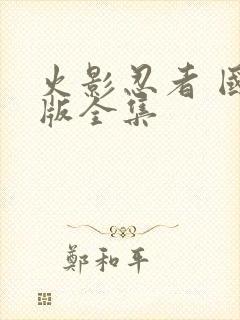 火影忍者 國
版全集
鄭和平